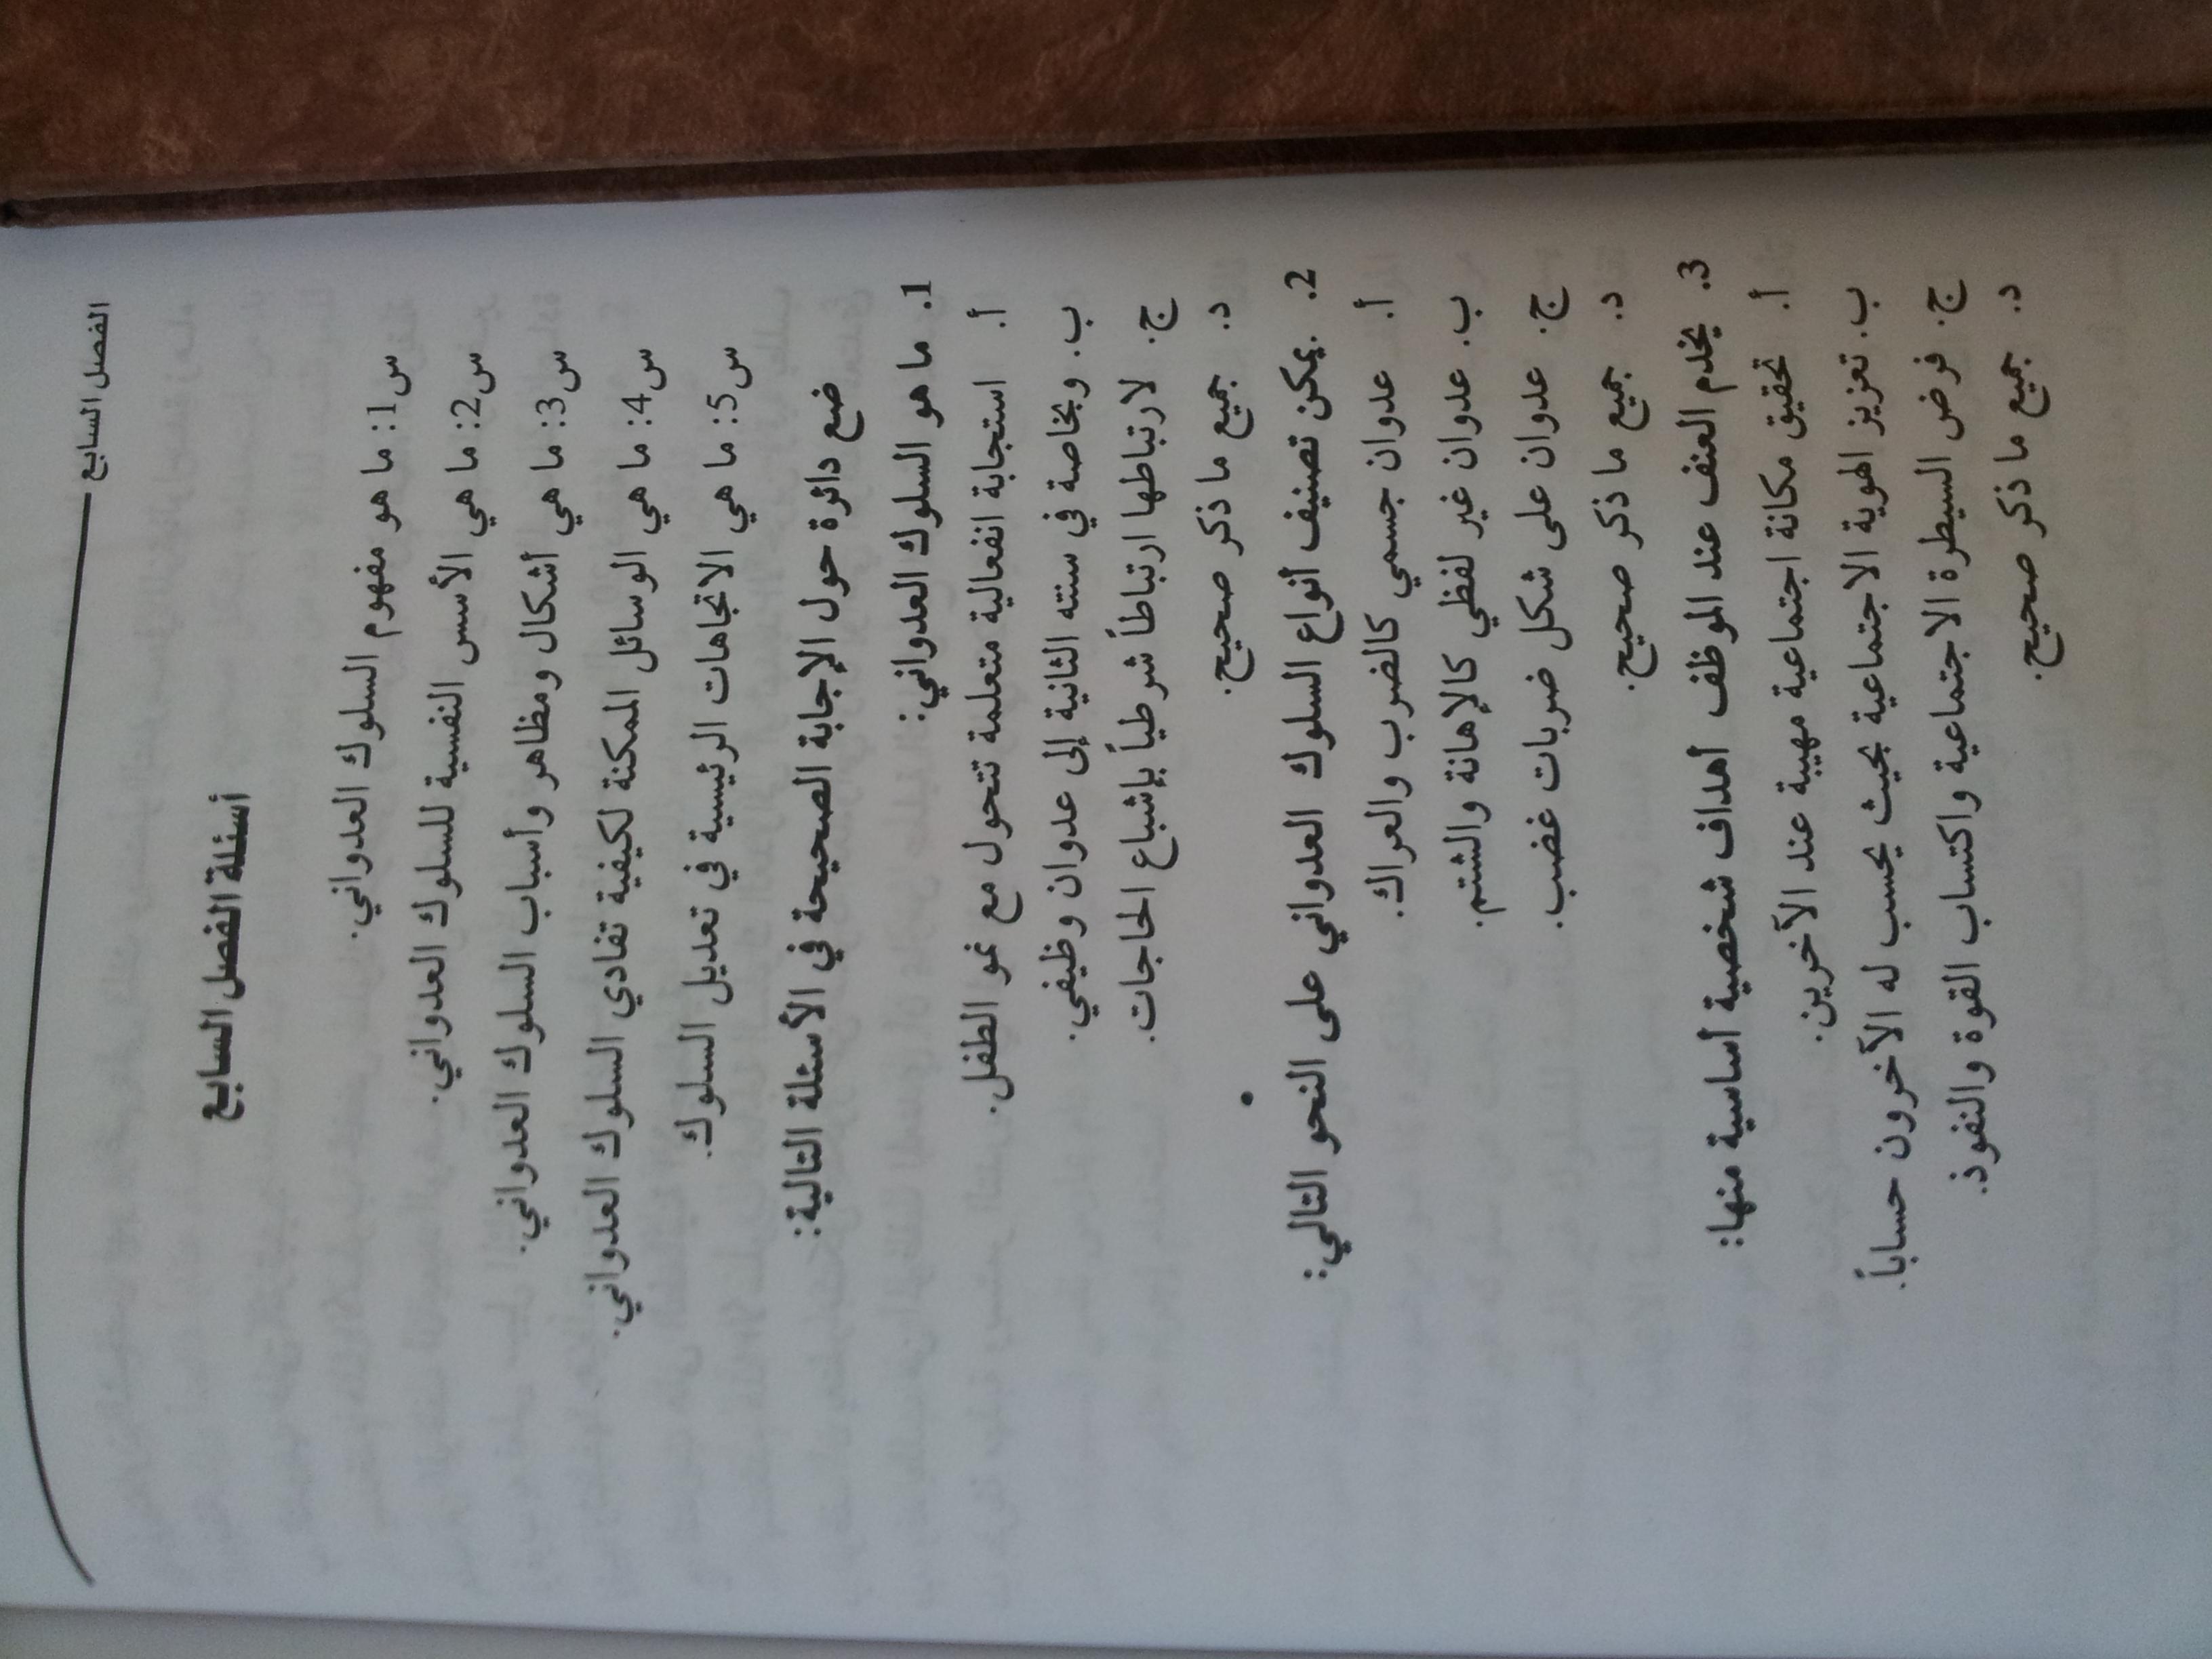 الفصل السابع
أسئلة الفصل السابع
س1: ما هو مفهوم السلوك العدواني.
س2: ما هي الأسس النفسية للسلوك العدواني.
س3: ما هي أشكال ومظاهر وأسباب السلوك العدواني.
س4: ما هي الوسائل الممكنة لكيفية تفادي السلوك العدواني.
س5: ما هي الاتجاهات الرئيسية في تعديل السلوك.
ضع دائرة حول الإجابة الصحيحة في الأسئلة التالية:
1. ما هو السلوك العدواني:
أ. استجابة انفعالية متعلمة تتحول مع نمو الطفل.
ب. وبخاصة في سنته الثانية إلى عدوان وظيفي.
ج. لارتباطها ارتباطاً شرطياً بإشباع الحاجات.
د. جميع ما ذكر صحيح.
2. يمكن تصنيف أنواع السلوك العدواني على النحو التالي:
أ. عدوان جسمي كالضرب والعراك.
ب. عدوان غير لفظي كالإهانة والشتم.
ج. عدوان على شكل ضربات غضب.
د. جميع ما ذكر صحيح.
3. يخدم العنف عند الموظف أهداف شخصية أساسية منها:
أ. تحقيق مكانة اجتماعية مهيبة عند الآخرين.
ب. تعزيز الهوية الاجتماعية بحيث يحسب له الآخرون حساباً.
ج. فرض السيطرة الاجتماعية واكتساب القوة والنفوذ.
د. جميع ما ذكر صحيح.